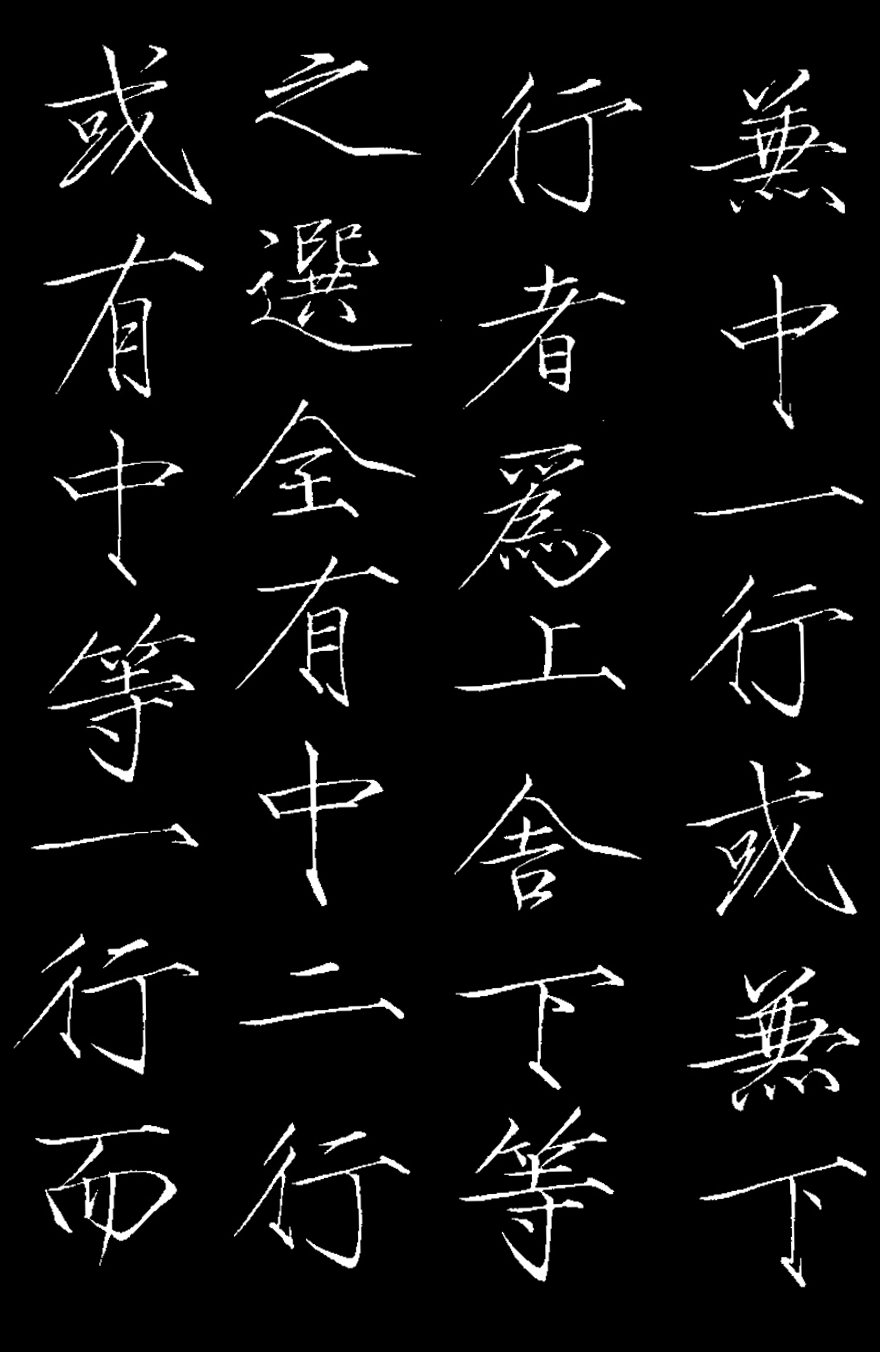 兼中一行或兼下
行者爲上舍下等
之選全有中二行
或有中等一行而